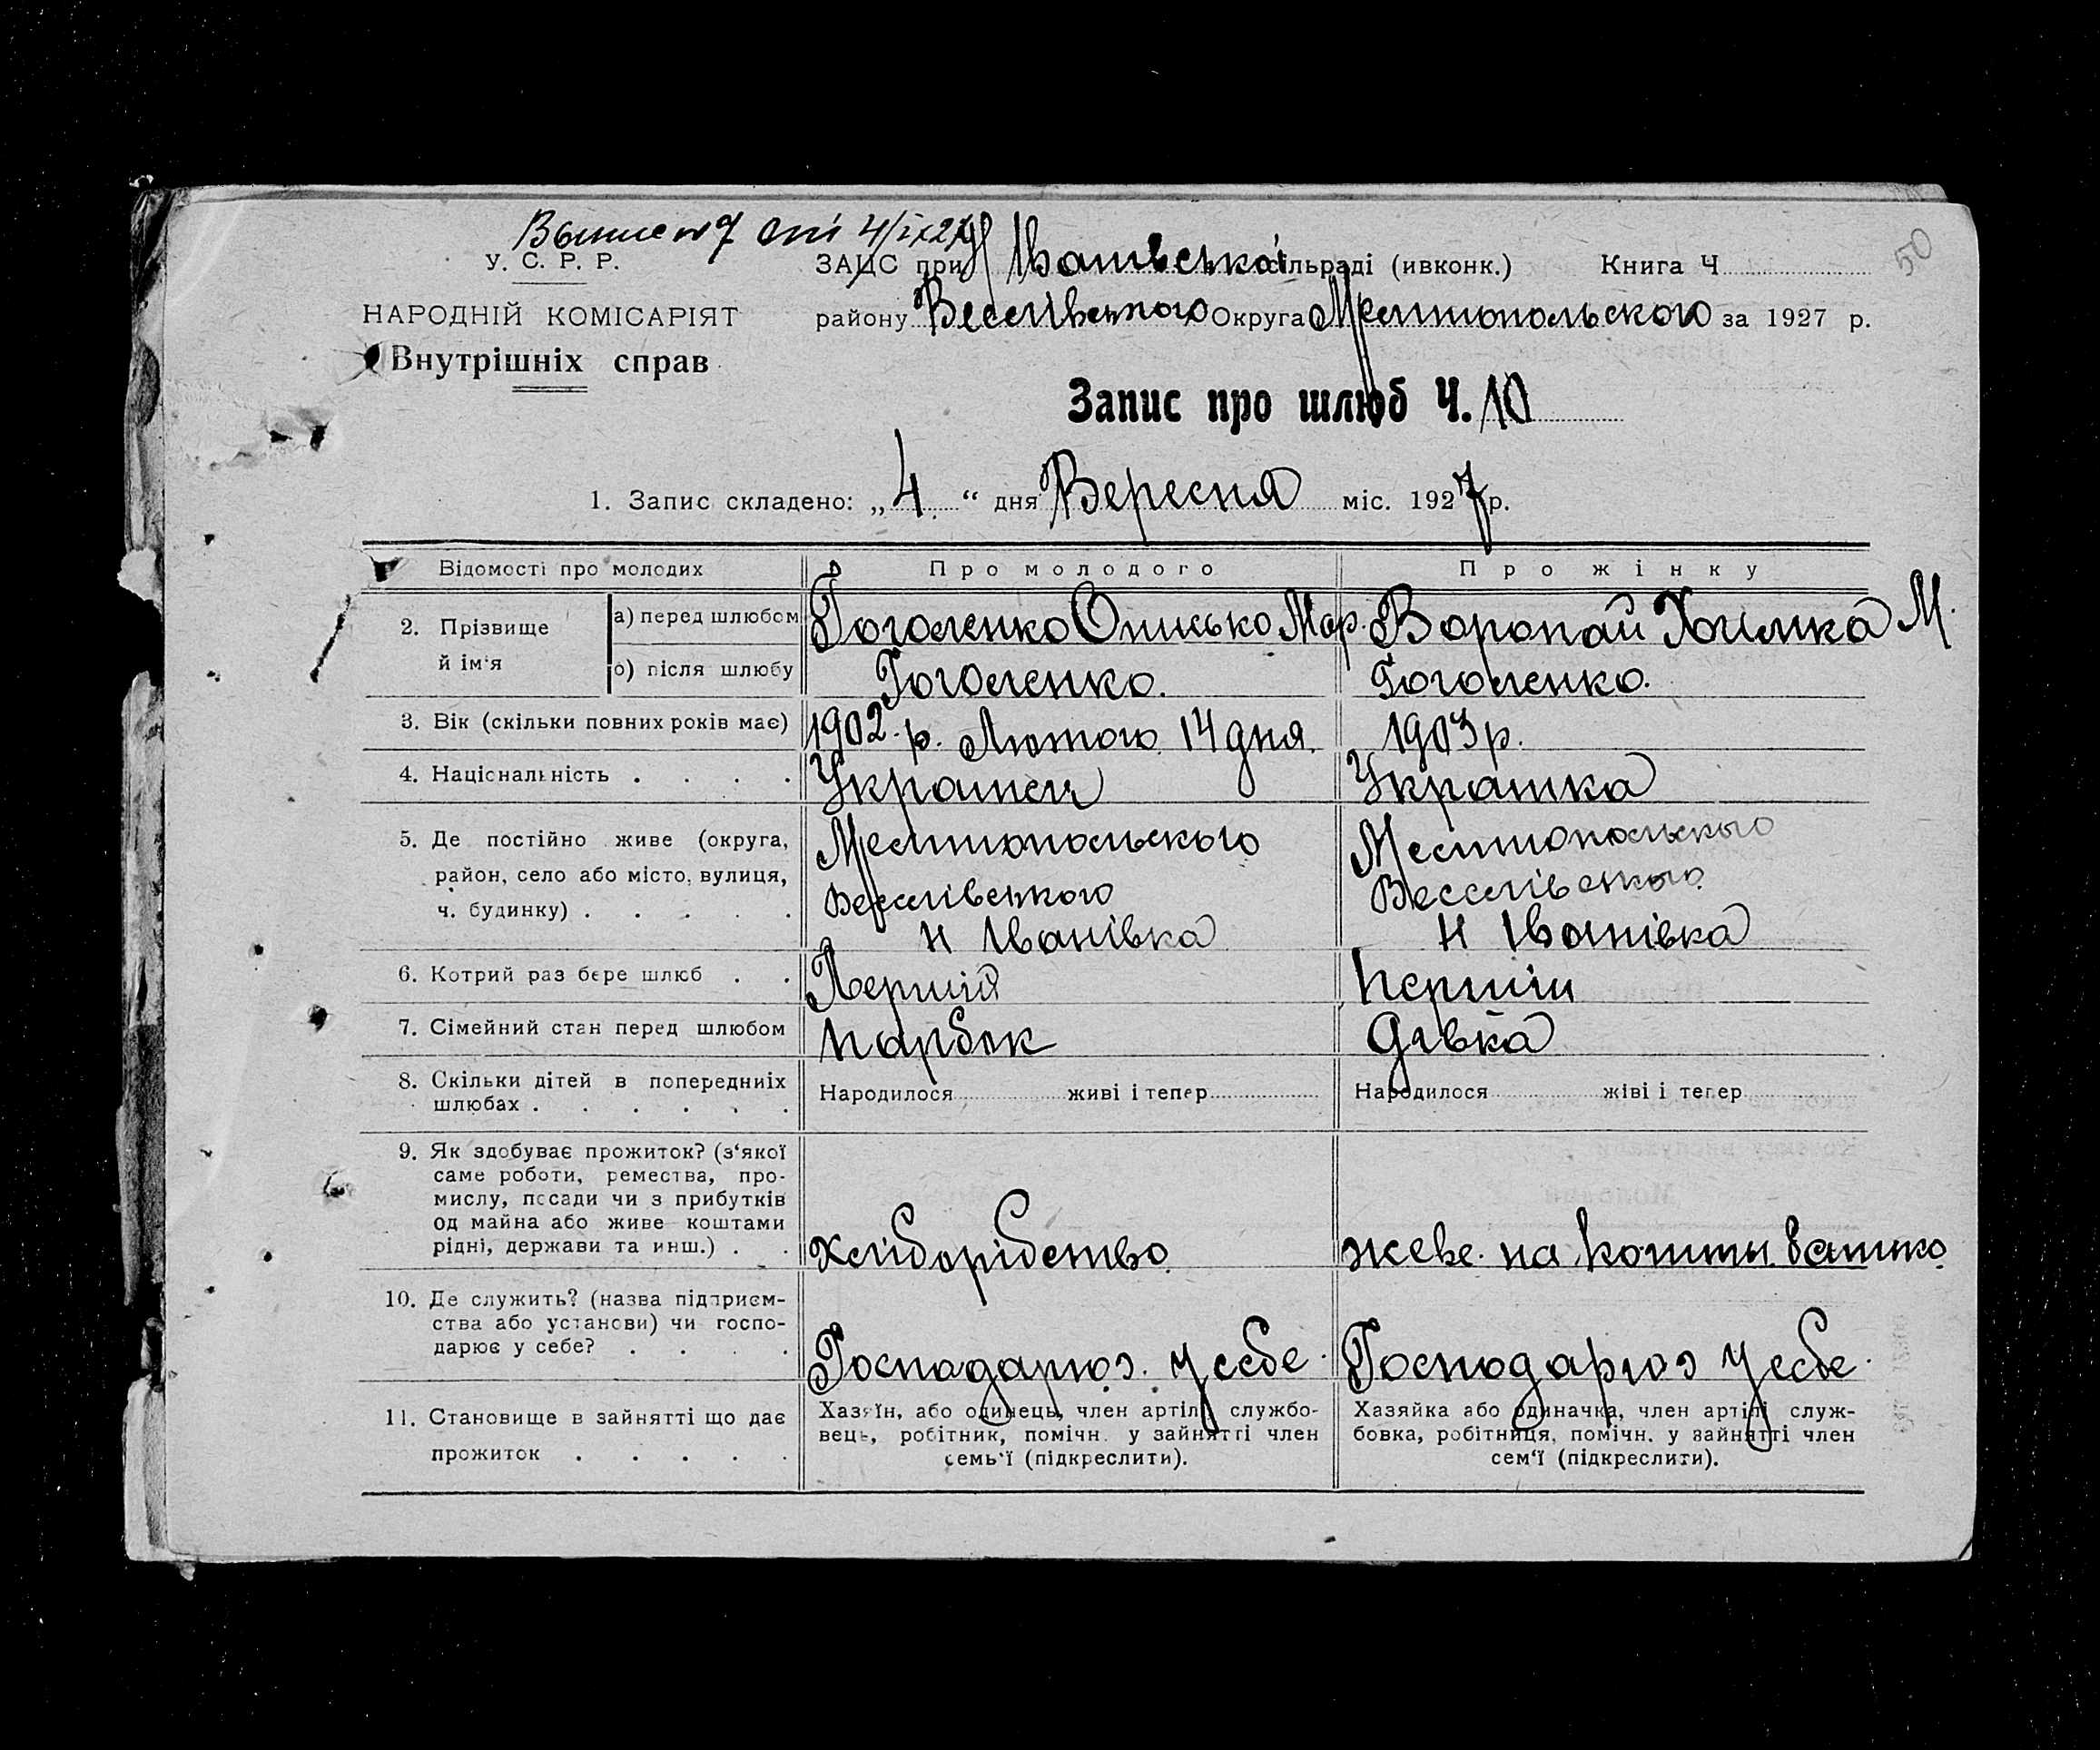 50
У. С. Р. Р.
НАРОДНІЙ КОМІСАРІЯТ
Внутрішніх справ
ЗАЦС при Н Іванівській сільраді (ивконк.) Книга Ч
району Веселівського Округа Мелітопольского за 1927 р.
Запис про шлюб Ч. 10
1. Запис складено: „4“ дня Вересня міс. 1927 р.
Відомості про молодих Про молодого Про жінку
2. Прізвище й ім'я а) перед шлюбом Гоголенко Описько Мар. Воропай Химка М.
б) після шлюбу Гоголенко. Гоголенко.
3. Вік (скільки повних років має) 1902. р. Лютого 14 дня. 1903 р.
4. Національність . . . . Украінец Украінка
5. Де постійно живе (округа, Мелітопольського Мелітопольського
район, село або місто, вулиця, Веселівського Веселівського
ч. будинку) . . . . . Н Іванівка Н Іванівка
6. Котрий раз бере шлюб . . Перший Перший
7. Сімейний стан перед шлюбом парбок дівка
8. Скільки дітей в попередниіх Народилося живі і тепер Народилося жіві і тепер
шлюбах . . . . . .
9. Як здобуває прожиток? (з'якої
саме роботи, ремества, про-
мислу, посади чи з прибутків
од майна або живе коштами
рідні, держави та инш.) . . хліборібство жеве на кошти батько
10. Де служить? (назва підприєм-
ства або установи) чи госпо-
дарює у себе? . . . . Господарюэ. у себе. Господарюэ у себе.
11. Становище в зайнятті що дає Хазяїн, або одинець, член артілі службо- Хазяйка або одиначка, член артілі служ-
прожиток . . . . . вець, робітник, помічн. у зайнятті член бовка, робітниця, помічн. у зайнятті член
семь'ї (підкреслити). сем'ї (підкреслити).